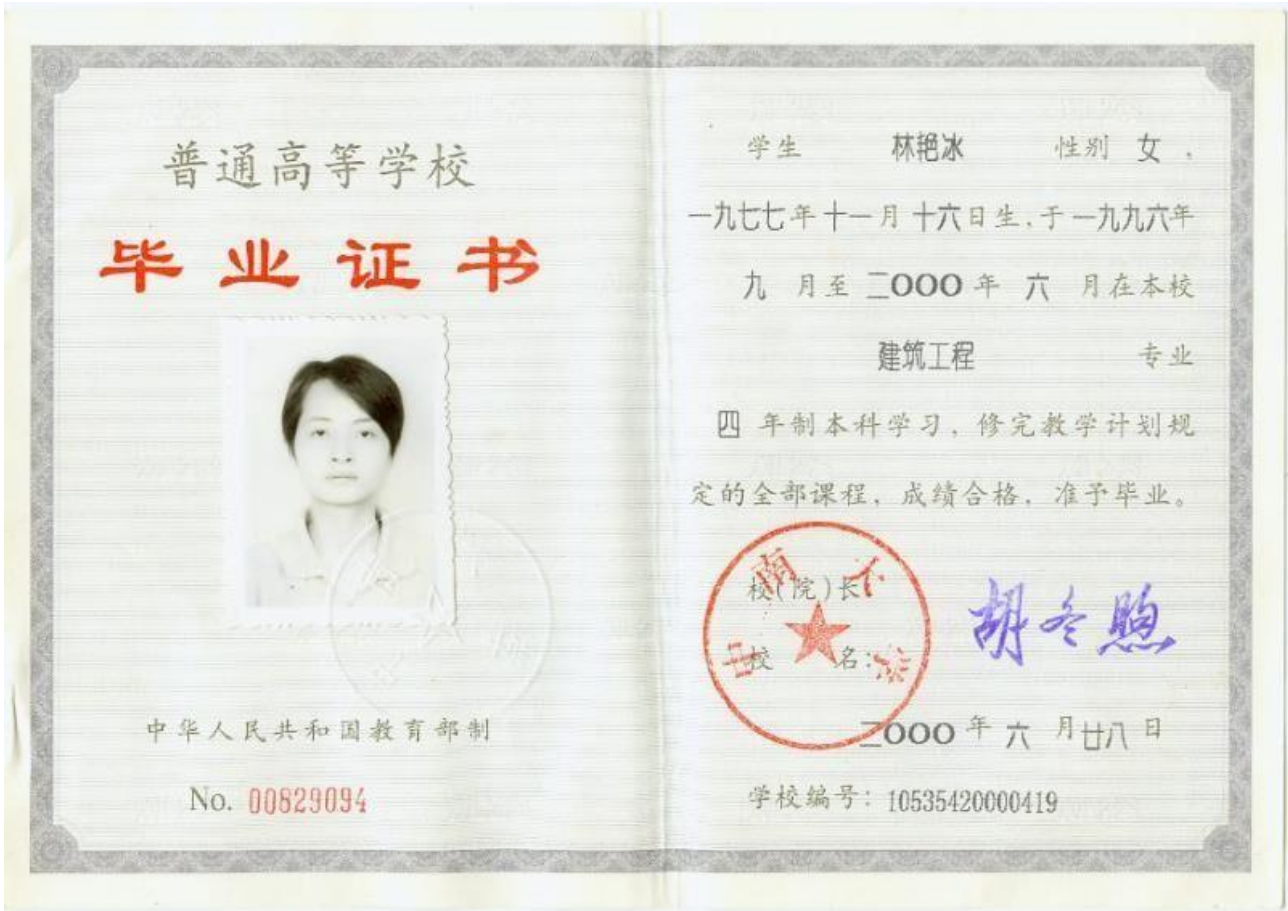 普通高等学校
毕业证书
中华人民共和国教育部制
No. 00829094
学生 林艳冰 性别 女,
一九七七年十一月十六日生,于一九九六年
九 月至 二000 年 六 月在本校
建筑工程 专业
四 年制本科学习,修完教学计划规
定的全部课程,成绩合格,准予毕业。
校(院)长:
胡冬煦
校 名:
中南大学
二000 年 六 月廿八日
学校编号:10535420000419